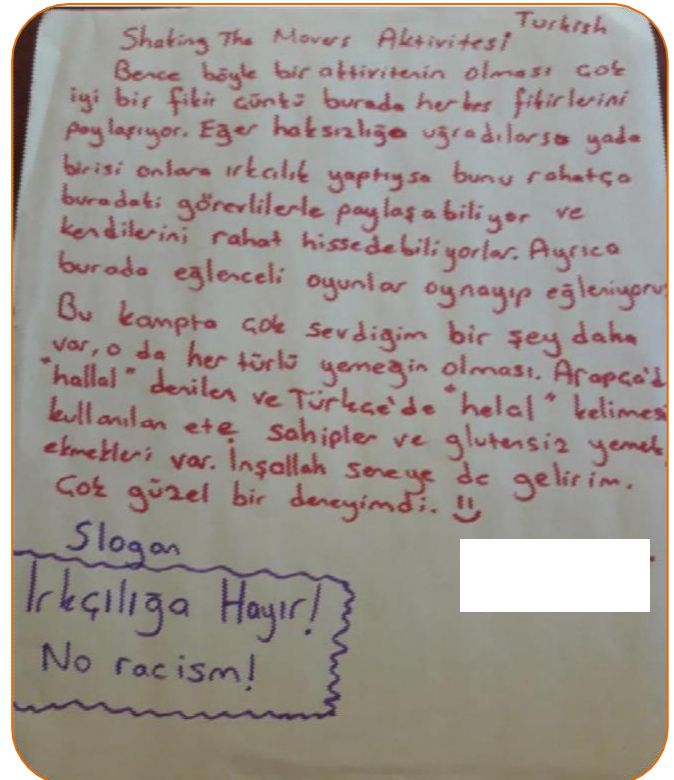 Turkish
Shaking The Movers Aktivitesi
Bence böyle bir aktivitenin olması çok
iyi bir fikir çünkü burada herkes fikirlerini
paylaşıyor. Eğer haksızlığa uğradılarsa yada
birisi onlara ırkçılık yaptıysa bunu rahatça
buradaki görevlilerle paylaşabiliyor ve
kendilerini rahat hissedebiliyorlar. Ayrıca
burada eğlenceli oyunlar oynayıp eğleniyoru
Bu kampta çok sevdiğim bir şey daha
var, o da her türlü yemeğin olması. Arapça'd
"hallal" denilen ve Türkçe'de "helal" kelimesi
kullanılan ete sahipler ve glutensiz yemek
ekmekleri var. İnşallah seneye de gelirim.
Çok güzel bir deneyimdi.
Slogan
Irkçılığa Hayır!
No racism!